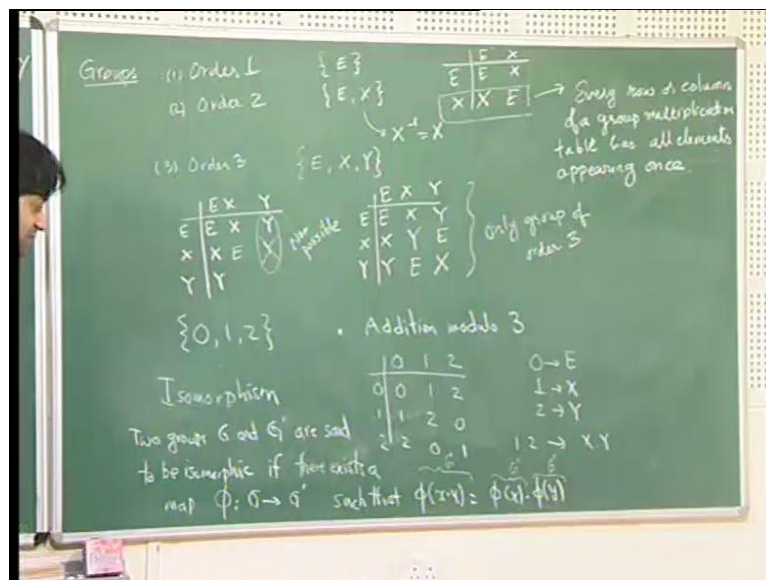 Groups (1) Order 1 {E}
(2) Order 2 {E, X}
X⁻¹ = X
E X
E E X
X X E
→ Every row or column
of a group multiplication
table has all elements
appearing once.
(3) Order 3 {E, X, Y}
E X Y
E E X Y
X X E Y
Y Y
Not possible
E X Y
E E X Y
X X Y E
Y Y E X
Only group of
order 3
{0, 1, 2} • Addition modulo 3
0 1 2
0 0 1 2
1 1 2 0
2 2 0 1
0 → E
1 → X
2 → Y
1 2 → X.Y
Isomorphism
Two groups G and G' are said
to be isomorphic if there exists a
map ϕ: G → G' such that ϕ(x·y) = ϕ(x)·ϕ(y)
G G' G'